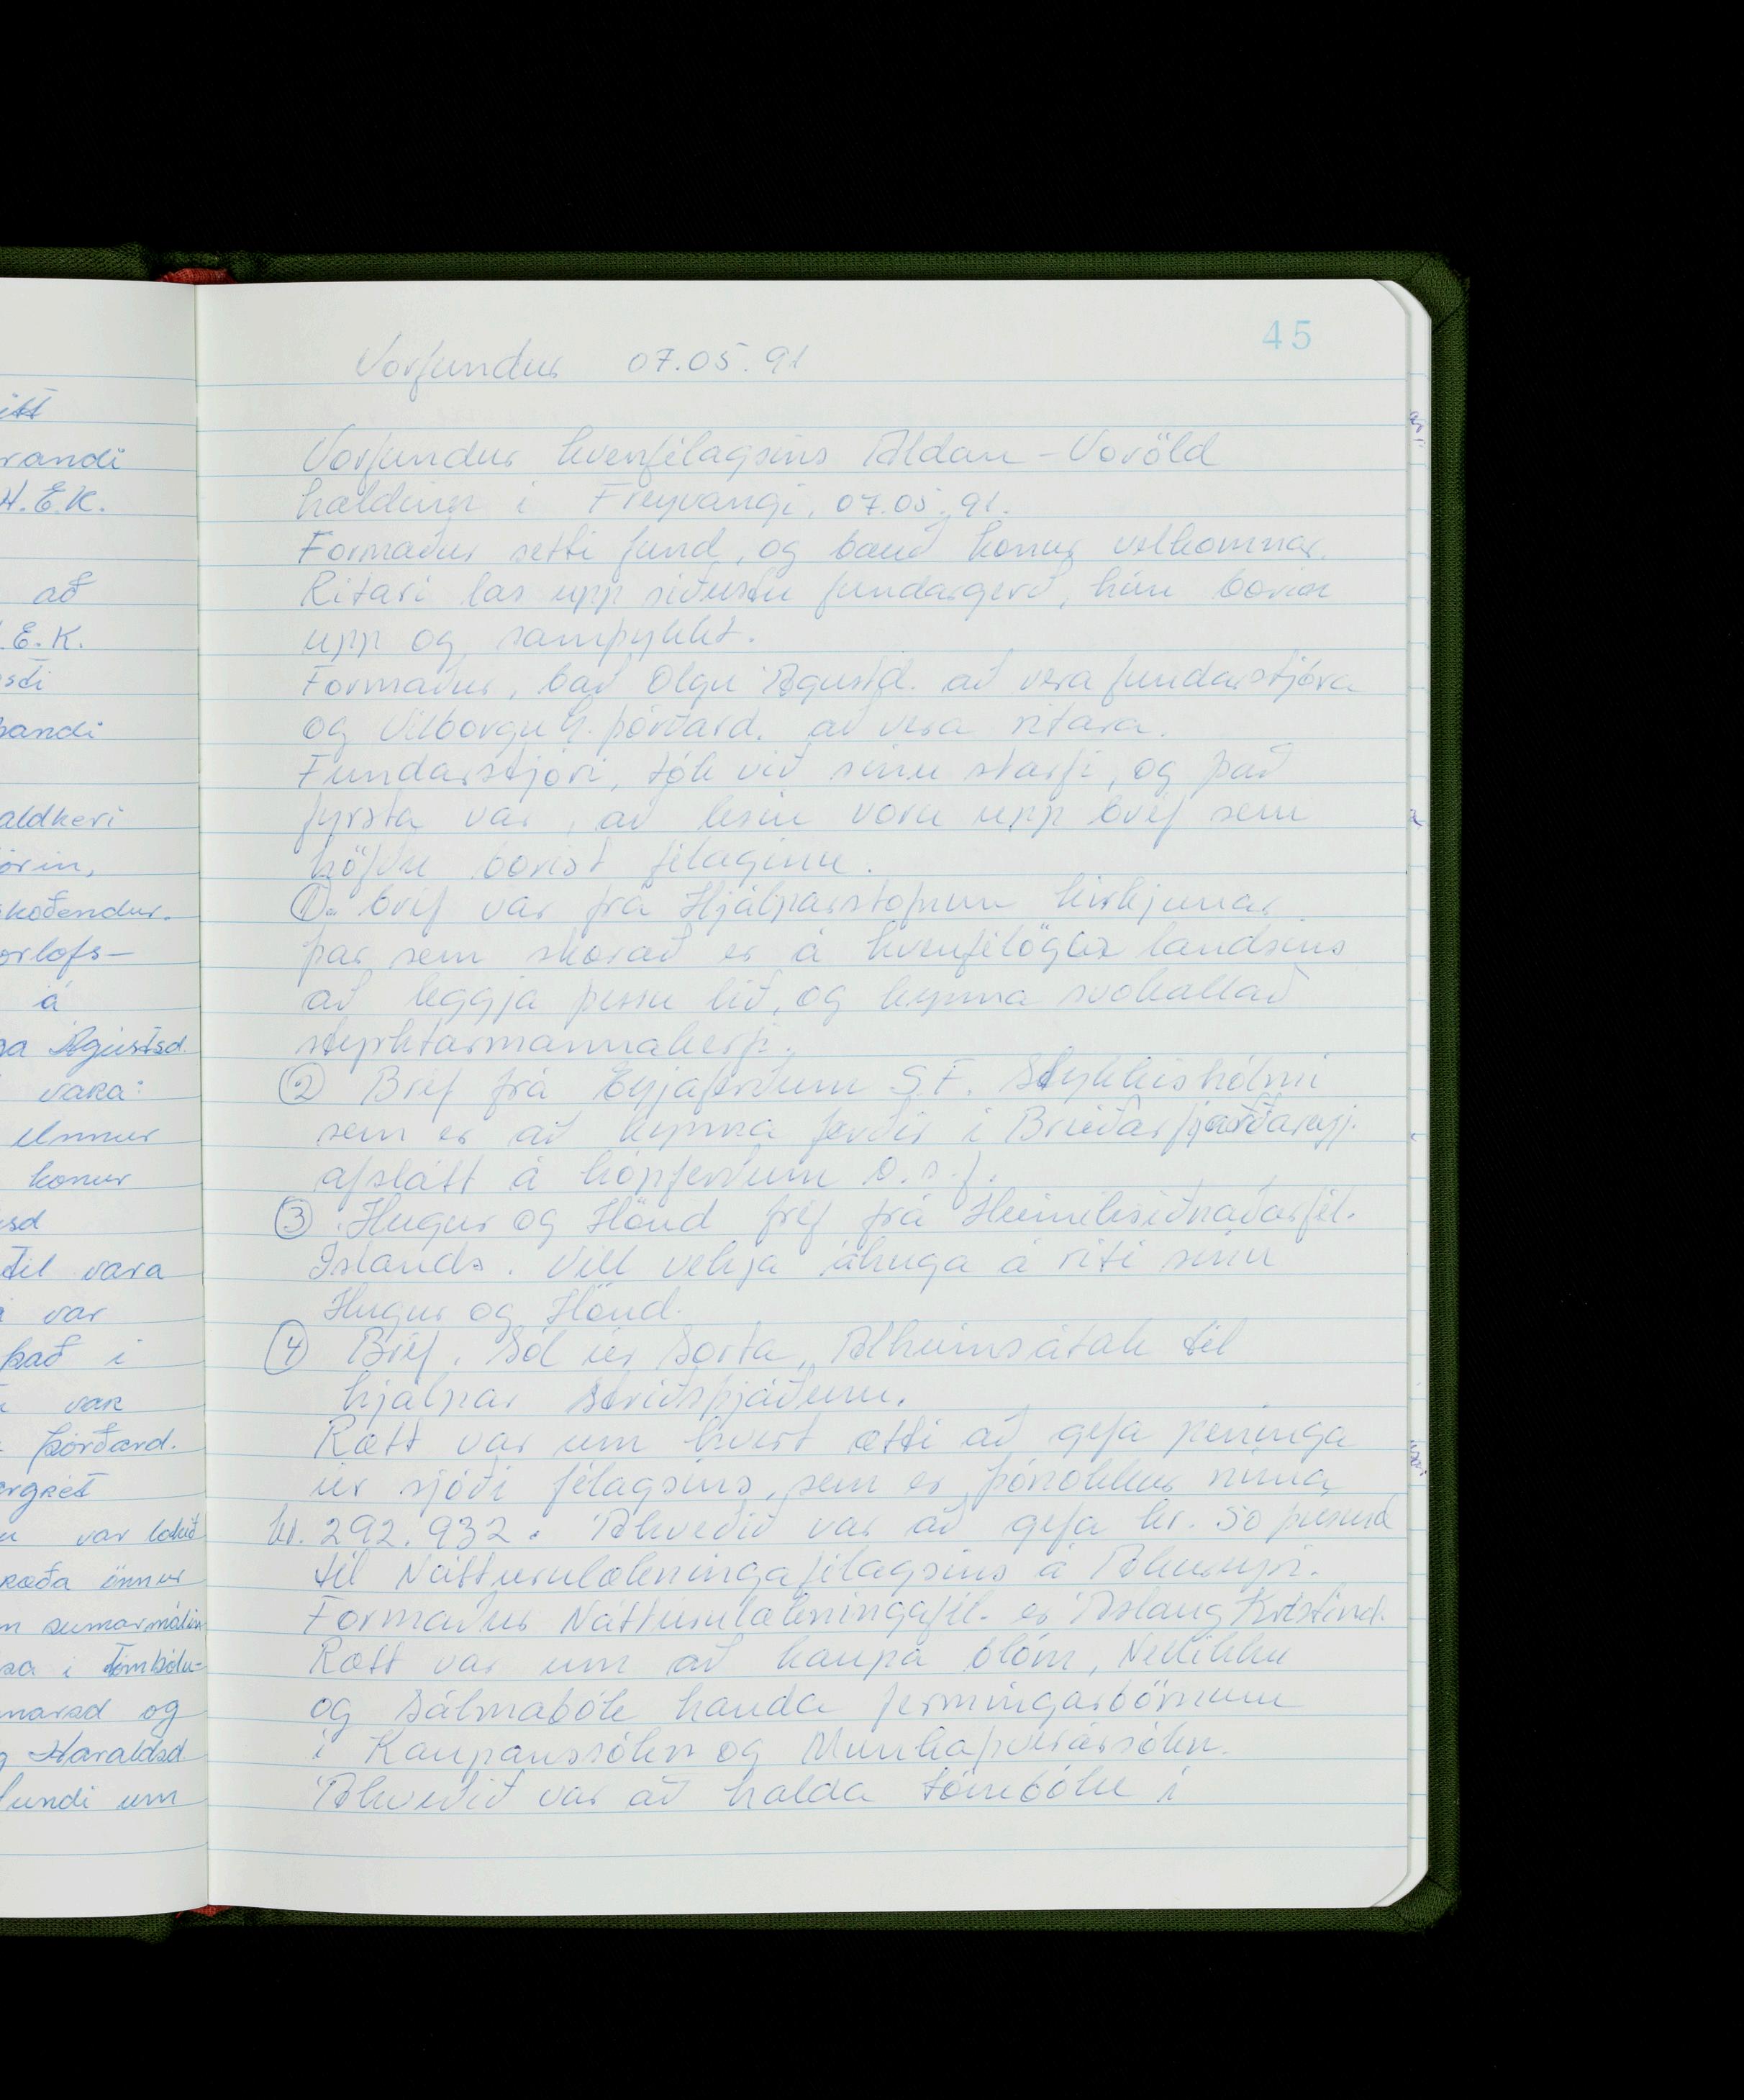 45
Vorfundur 07.05.91
Vorfundur kvenfélagsins Aldan - Voröld
haldinn í Freyvangi, 07.05.91.
Formaður setti fund, og bauð konur velkomnar.
Ritari las upp síðustu fundargerð, hún borin
upp og samþykkt.
Formaður, bað Olgu Ágústd. að vera fundarstjóra
og Vilborgu G. Þórðard. að vera ritara.
Fundarstjóri, tók við sínu starfi, og það
fyrsta var, að lesin voru upp bréf sem
höfðu borist félaginu.
① bréf var frá Hjálparstofnun kirkjunar
þar sem skorað er á kvenfélögin landsins
að leggja þessu lið, og kynna svokallað
styrktarmannakerfi.
② Bréf frá Eyjaferðum S.F. Stykkishólmi
sem er að kynna ferðir í Breiðarfjarðareyj.
afslátt á hópferðum o.s.f.
③ Hugur og Hönd fréf frá Heimilisiðnaðarfél.
Íslands. Vill vekja áhuga á riti sínu
Hugur og Hönd.
④ Bréf. Sól úr Sorta, Alheimsátak til
hjálpar stríðsþjáðum.
Rætt var um hvort ætti að gefa peninga
úr sjóði félagsins, sem er þónokkur núna
kr. 292.932. Ákveðið var að gefa kr. 50 þúsund
til Náttúrulækningafélagsins á Akureyri.
Formaður Náttúrulækningafél. er Áslaug Kristind.
Rætt var um að kaupa blóm, Nelikku
og Sálmabók handa fermingarbörnum
í Kaupanssókn og Munkaþverársókn.
Ákveðið var að halda tómbólu í
itt
randi
H.E.K.
að
.E.K.
sandi
aldkeri
örin,
koðendur.
orlofs-
á
ga Ágústsd.
vara:
Unnur
konur
sd
til vara
var
það í
var
Þórðard.
ergret
var lokið
ræða önnur
sumarmálin
sa í Tombólu-
marsd og
Haraldsd
fundi um